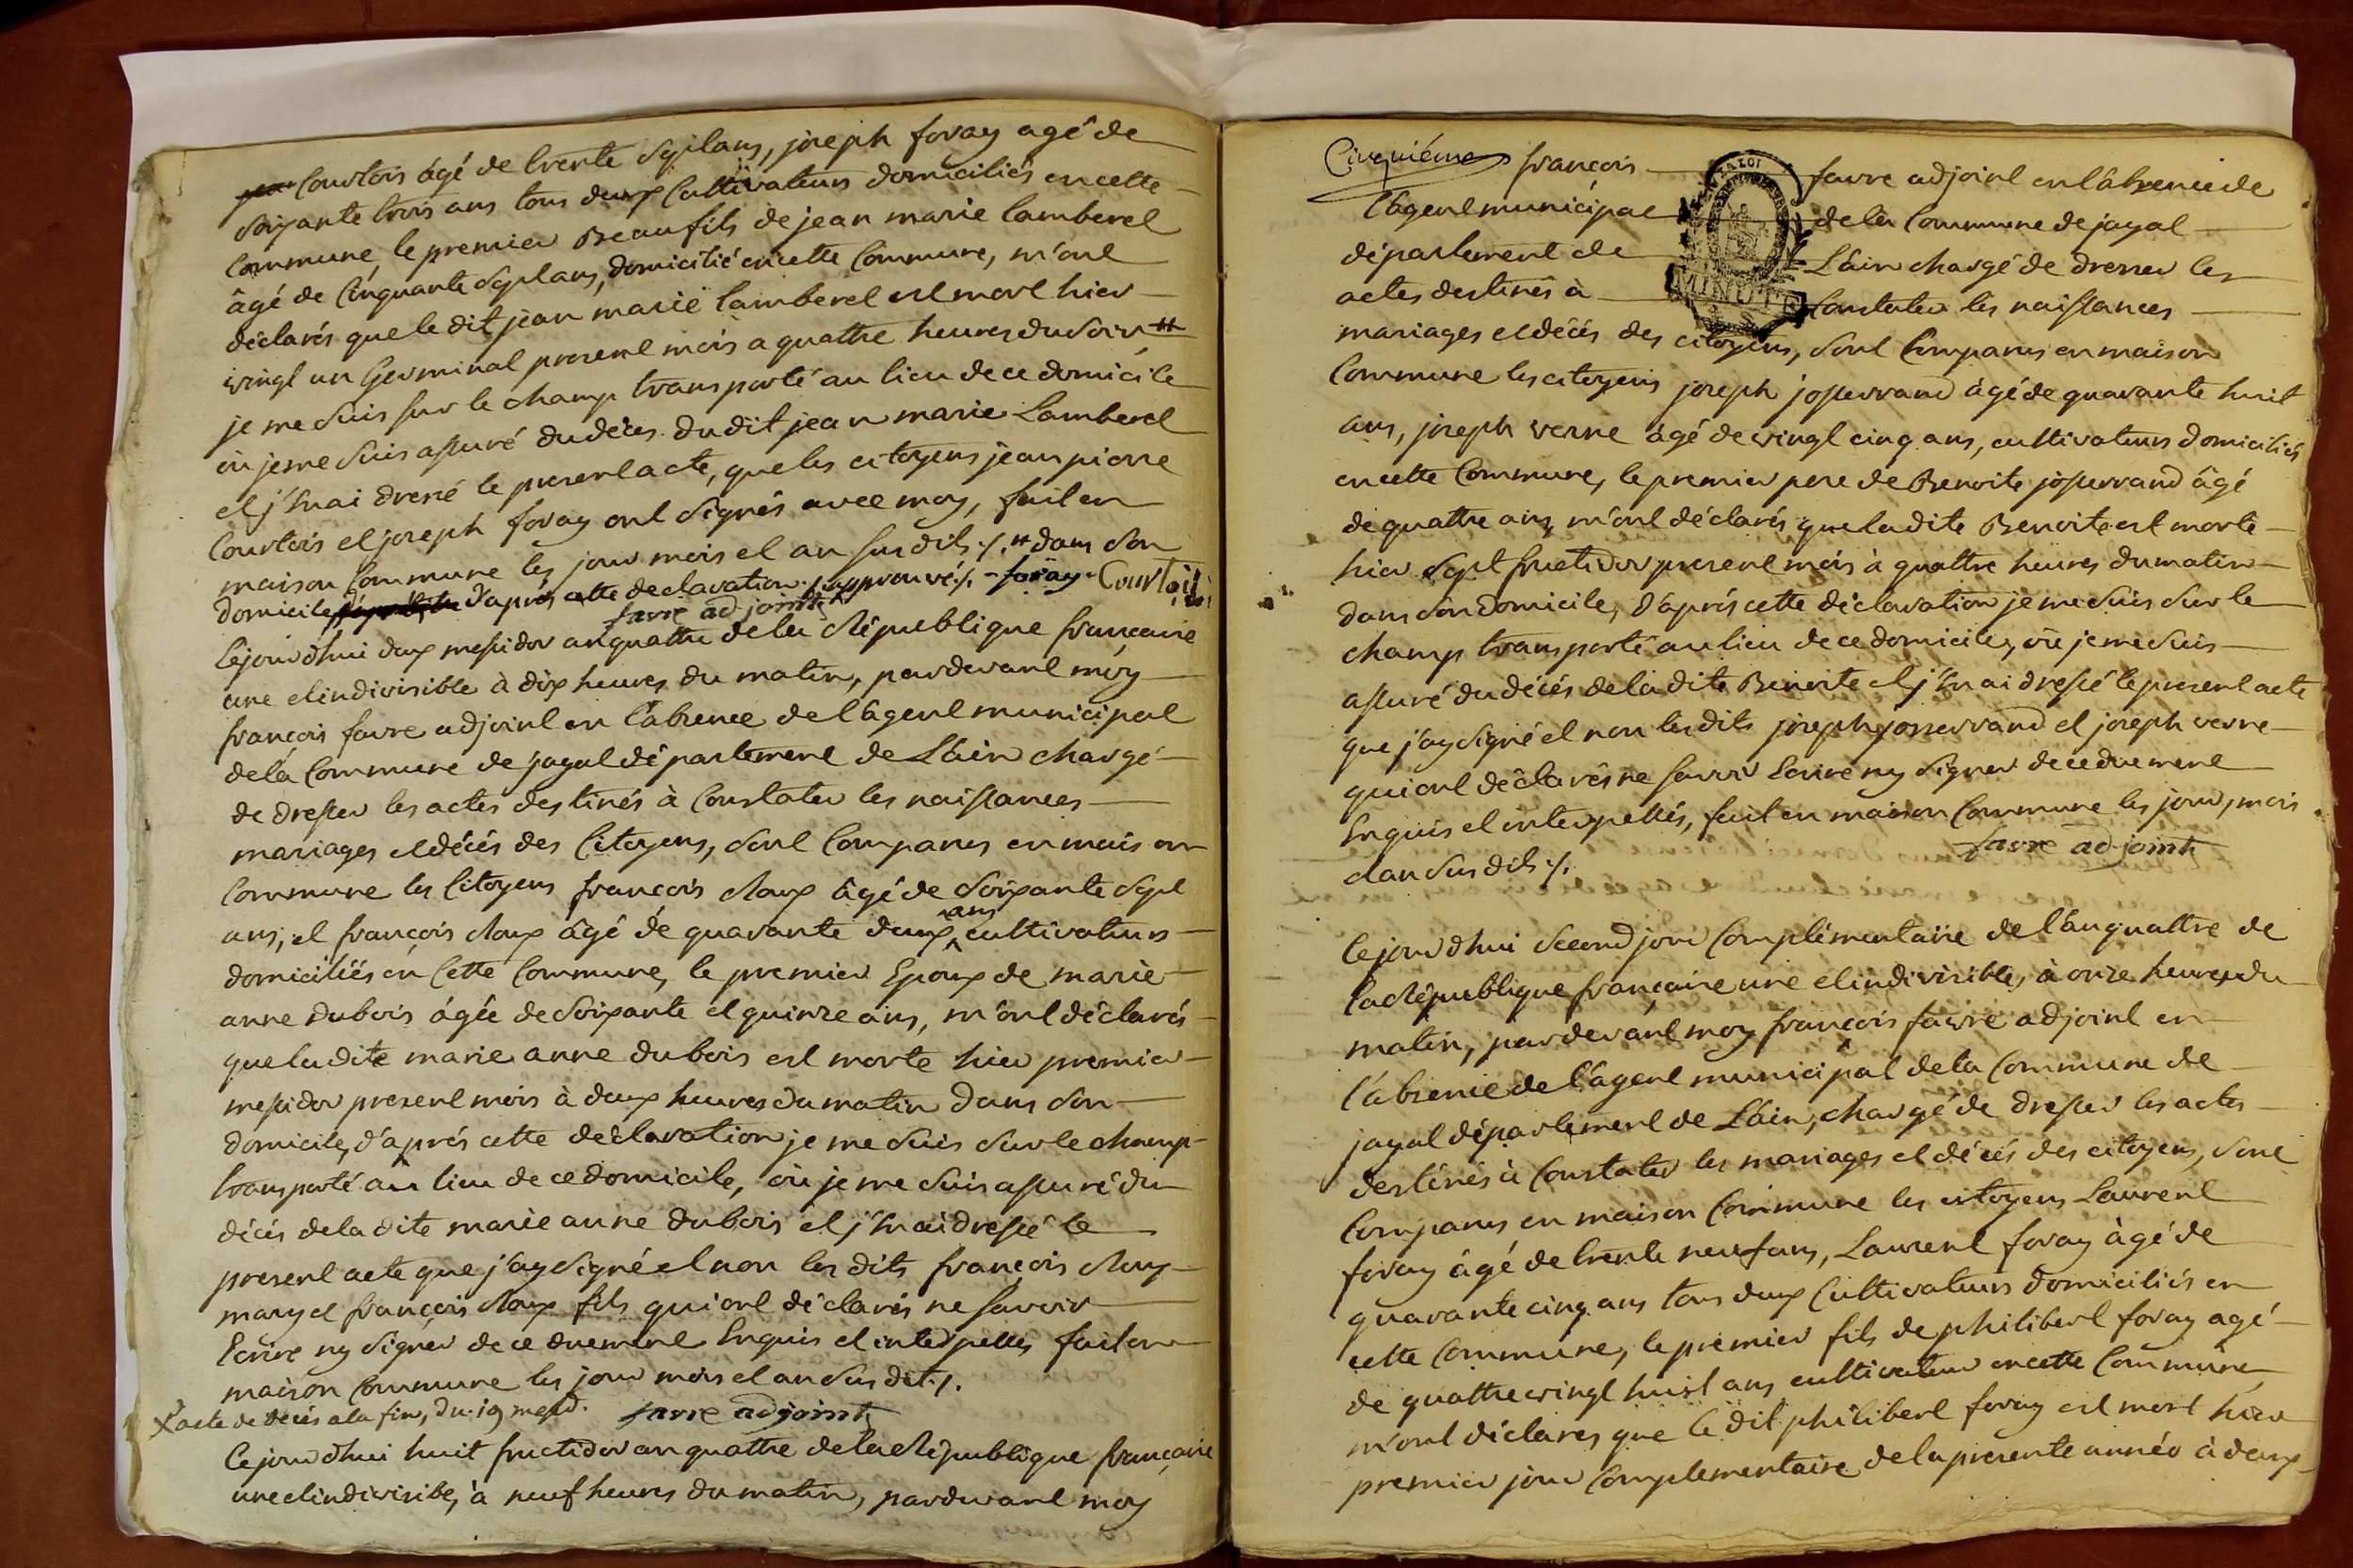 Courtois âgé de trente sept ans, joseph foray agé de
soixante trois ans tous deux Cultivateurs domiciliés en cette
Commune, le premier Beaufils de jean marie lamberel
âgé de Cinquante sept ans, domicilié en cette Commune, m'ont
déclarés que le dit jean marie lamberel est mort hier
vingt un Germinal present mois a quattre heures du soir #
je me suis sur le champ transporté au lieu de ce domicile
où je me suis assuré du décès du dit jean marie Lamberel
et j'en ai dressé le present acte, que les citoyens jean pierre
Courtois et joseph foray ont signés avec moy, fait en
maison Commune les jour mois et an susdits ./. # dans son
domicile d'aprés cette declaration japprouvé ./. foray Courtois
favre adjoint
Cejourdhui deux messidor an quattre de la République française
une et indivisible à dix heures du matin, pardevant moy
françois favre adjoint en l'absence de l'agent municipal
de la Commune de jayat département de L'ain chargé
de dresser les actes destinés à Constater les naissances
mariages et décès des Citoyens, sont Comparus en maison
Commune les Citoyens françois Roux âgé de soixante sept
ans, et françois Roux âgé de quarante deux ans cultivateurs
domiciliés en Cette Commune, le premier Epoux de marie
anne dubois âgée de soixante et quinze ans, m'ont déclarés
que la dite marie anne dubois est morte hier premier
messidor present mois à deux heures du matin dans son
domicile, d'aprés cette déclaration je me suis sur le champ
transporté au lieu de ce domicile, où je me suis assuré du
décès de la dite marie anne dubois et j'en ai dressé le
present acte que j'ay signé et non les dits françois Roux
mary et françois Roux fils qui ont déclarés ne savoir
Ecrire ny signer de ce duement Enquis et interpellés fait en
maison Commune les jour mois et an susdit ./.
X acte de décès a la fin, du 19 messid. favre adjoint
Cejourdhui huit fructidor an quattre de la République française
une et indivisible, à neuf heures du matin, pardevant moy
Cinquiéme françois favre adjoint en l'absence de
l'agent municipal de la Commune de jayat
département de L'ain chargé de dresser les
actes destinés à Constater les naissances
MINUTE
mariages et décès des citoyens, sont Comparus en maison
Commune les citoyens joseph josserrand âgé de quarante huit
ans, joseph verne âgé de vingt cinq ans, cultivateurs domiciliés
en cette Commune, le premier pere de Benoite josserrand âgé
de quattre ans, m'ont déclarés que la dite Benoite est morte
hier sept fructidor present mois à quattre heures du matin
dans son domicile, d'aprés cette déclaration je me suis sur le
champ transporté au lieu de ce domicile, où je me suis
assuré du décès de la dite Benoite et j'en ai dressé le present acte
que j'ay signé et non les dits joseph josserrand et joseph verne
qui ont déclarés ne savoir Ecrire ny signer de ce duement
Enquis et interpellés, fait en maison Commune les jour, mois
et an susdits ./. favre adjoint
Cejourdhui second jour Complémentaire de l'an quattre de
la République française une et indivisible, à onze heures du
matin, pardevant moy françois favre adjoint en
l'absence de l'agent municipal de la Commune de
jayat département de L'ain, chargé de dresser les actes
destinés à Constater les mariages et décès des citoyens, sont
Comparus en maison Commune les citoyens Laurent
foray âgé de trente neuf ans, Laurent foray âgé de
quarante cinq ans tous deux Cultivateurs domiciliés en
cette Commune, le premier fils de philibert foray agé
de quattre vingt huit ans cultivateur en cette Commune
m'ont déclares que le dit philibert foray est mort hier
premier jour Complementaire de la presente année à deux